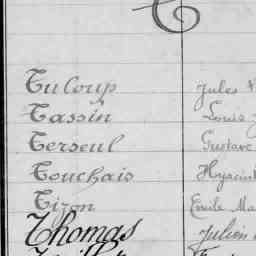 T
Tuloup Jules
Tassin Louis
Terseul Gustave
Touchais Hyacint
Tizon Emile Ma
Thomas Julien